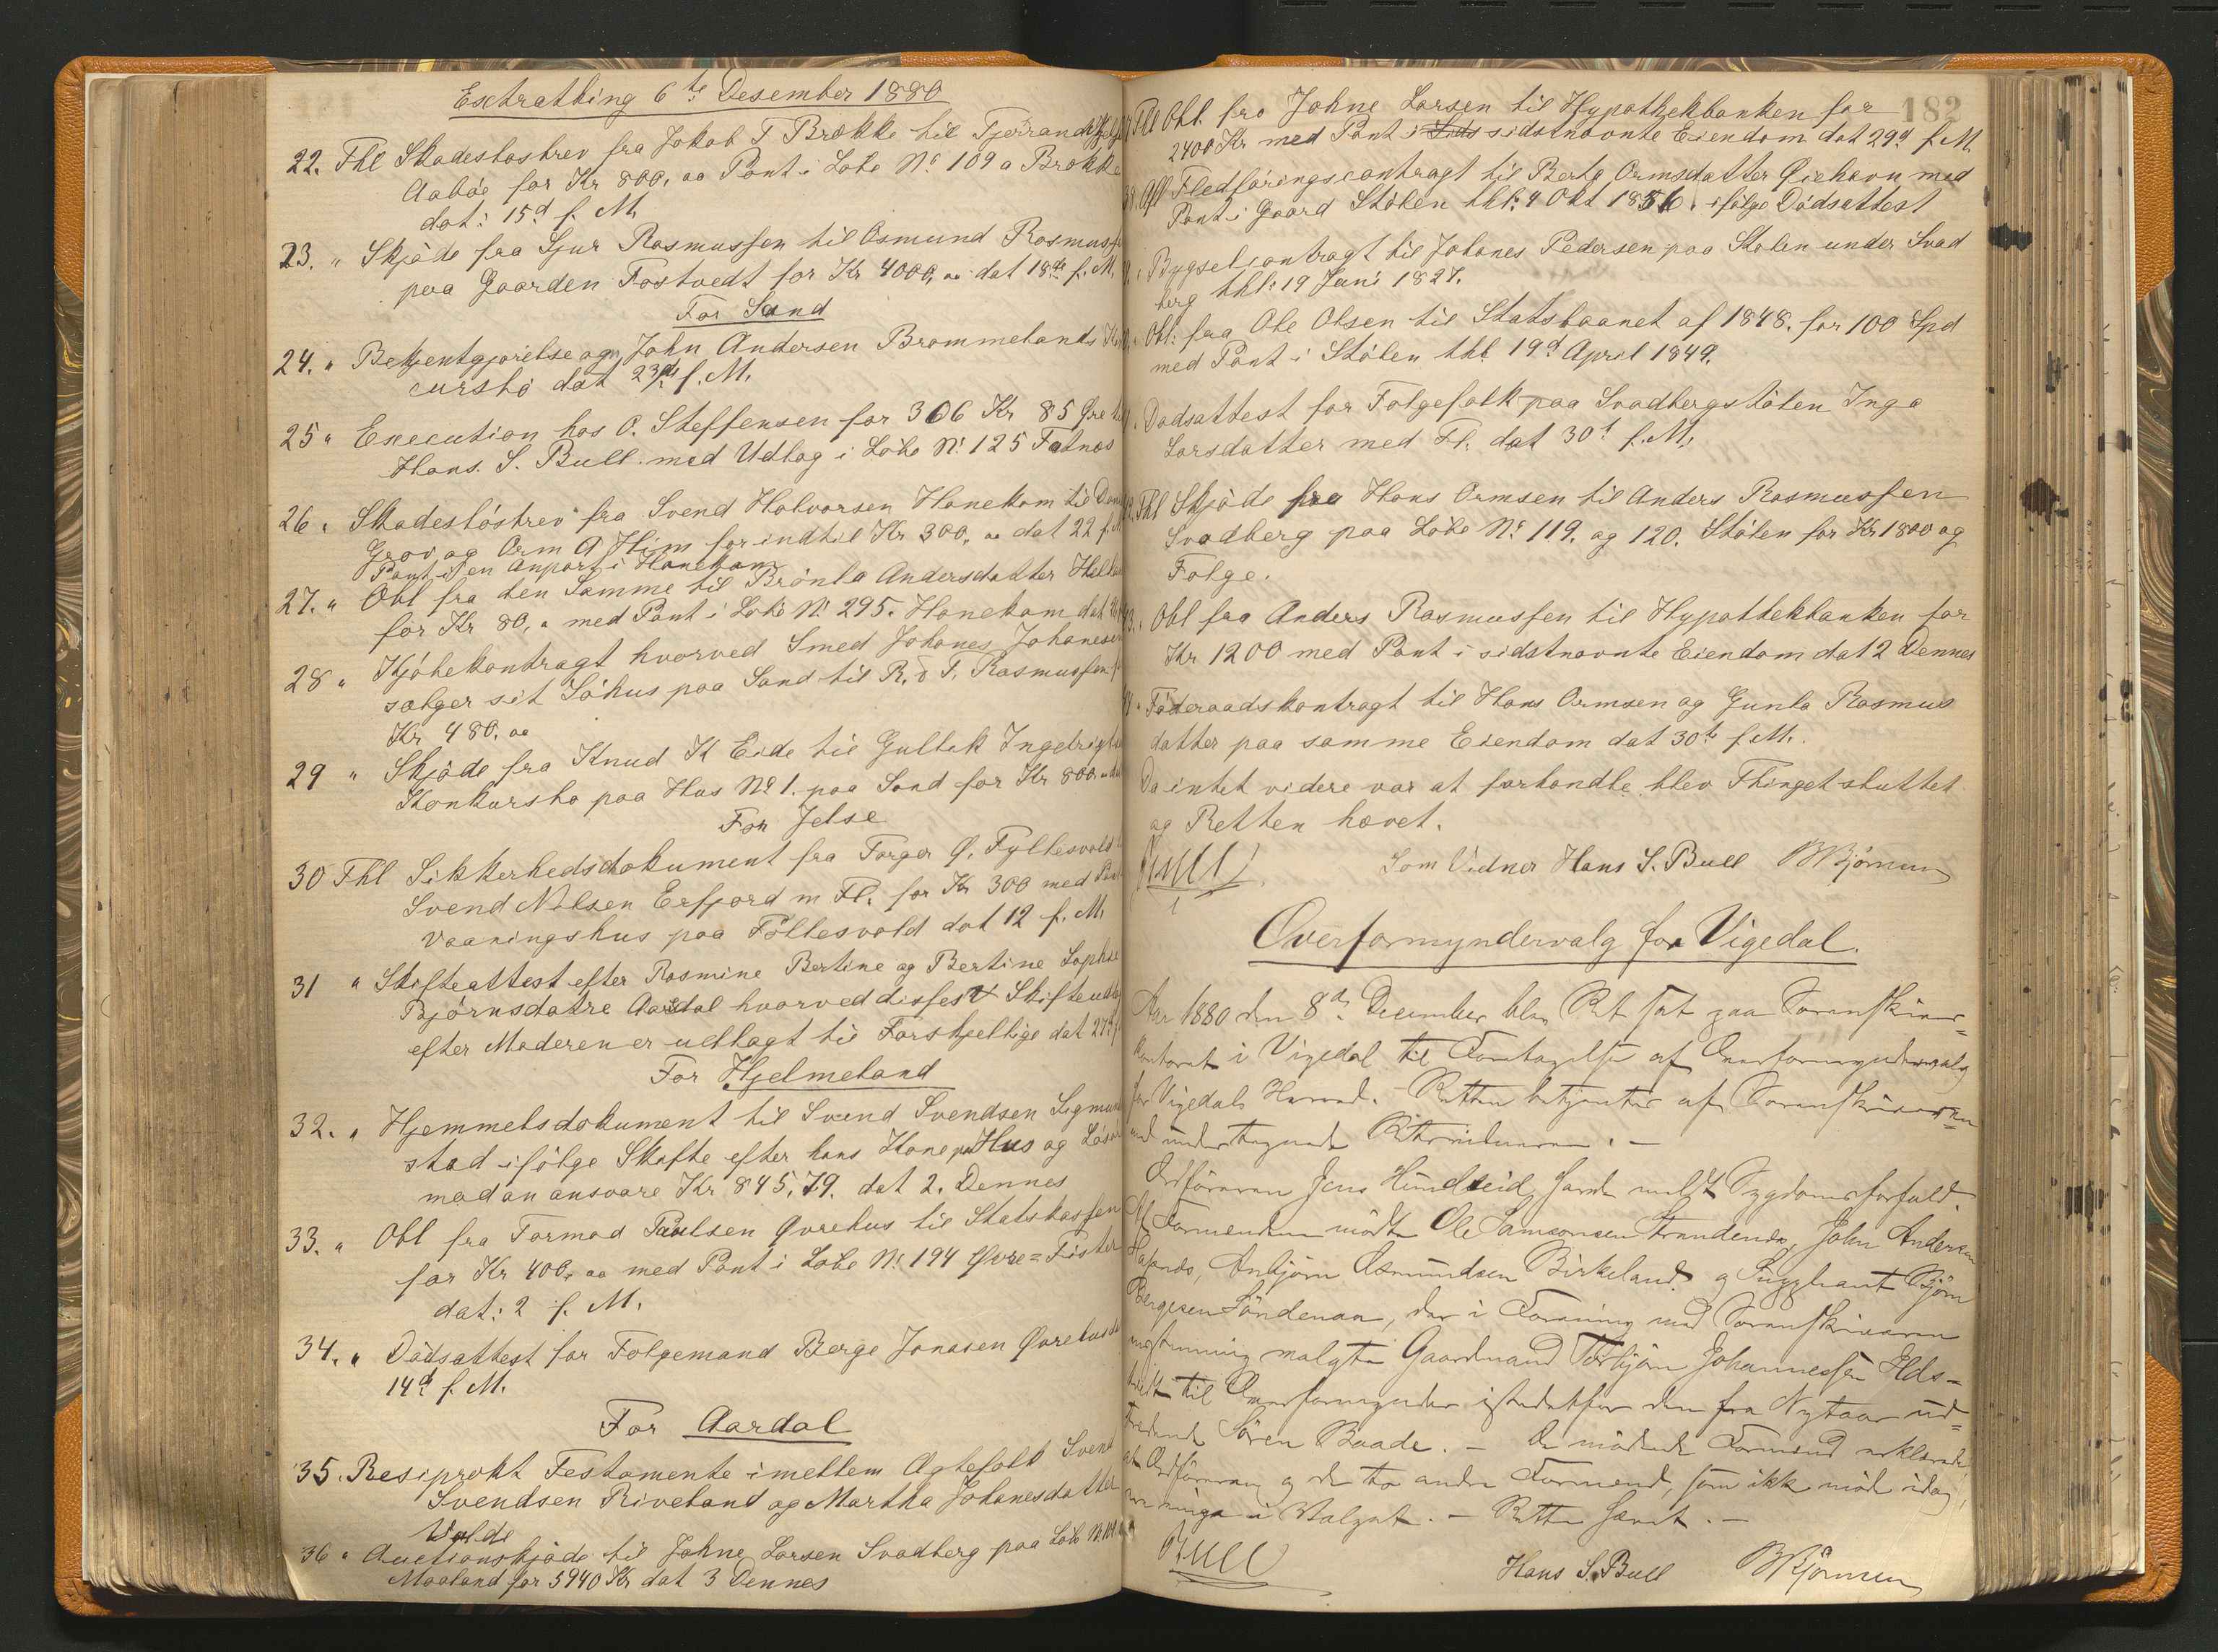 Extrathing 6te Desember 1880
22. Thl Skadeslosbrev fra Jakob T Brække til Tjerrand
Aabøe for Kr 800, oo Pant i Løbe No 109 a Brække
dat: 15d f. M.
23. " Skjøde fra Sjur Rasmussen til Osmund Rasmusse
paa Gaarden Tostvedt for Kr 4000, oo dat 18de f. M.
For Sand
24. " Bekjentgjørelse ogn John Andersen Brommelands
cursbo dat 23de f. M.
25 " Execution hos O. Steffensen for 306 Kr 85 Øre
Hans. S. Bull. med Udlæg i Løbe No 125 Fatnæs
26 " Skadesløsbrev fra Svend Halvorsen Hanekam til
Grov og Orm A Hiim for indtil Kr 300, oo dat 22 f.
Pant i en Anpart i Hanekam
27. " Obl fra den Samme til Brønla Andersdatter
for Kr 80, " med Pant i Løbe No 295. Hanekam dat
28 " Kjøbekontragt hvorved Smed Johanes Johanesen
sælger sit Søhus paa Sand til R. & T. Rasmussen
Kr 480, oo
29 " Skjøde fra Knud K Eide til Gullak Ingebrigts
Konkursbo paa Hus No 1. paa Sand for Kr 800
For Jelse
30 Thl Sikkerhedsdokument fra Torger O. Fyllesvold
Svend Nilsen Erfjord m Fl. for Kr 300 med
Vaaningshus paa Føllesvold dat 12 f. M.
31 " Skifteattest efter Rasmine Bertine og Bertine Sophie
Bjørnsdatre Aardal hvorved disses Skifteudlæg
efter Moderen er udlagt til Forskjellige dat
For Hjelmeland
32. " Hjemmelsdokument til Svend Svendsen Sigmund
stad ifølge Skifte efter hans Kone paa Hus og
mod an ansvare Kr 845, 79. dat 2. Dennes
33. " Obl fra Tormod Paulsen Øvrehus til Statskassen
for Kr 400, oo med Pant i Løbe No 194 Øvre=Fister
dat: 2 f. M.
34. " Dødsattest for Følgemand Berge Jonasen Øvrehus
14d f. M.
For Aardal
35. Resiprokt Testamente imellem Ægtefolk Svend
Svendsen Riveland og Martha Johanesdatter
Valde
36 " Auctionskjøde til Johne Larsen Svadberg paa Løbe No
Maaland for 5940 Kr dat 3 Dennes
182
Thl Obl. fra Johne Larsen til Hypothekbanken for
2400 Kr med Pant i sidstnævnte Eiendom dat 29d f. M.
38. Afl Fledføringscontragt til Berta Ormsdatter Riehavn med
Pant i Gaard Stølen thl: 4 Okt 1856. ifølge Dødsattest
" Bygselcontragt til Johanes Pedersen paa Stølen under Svad
berg thl: 19 Juni 1827.
" Obl: fra Ole Olsen til Statslaanet af 1848. for 100 Spd
med Pant i Stølen thl 19d April 1849.
Dødsattest for Følgefolk paa Svadbergstølen Inga
Larsdatter med Fl. dat 30t f. M.
Thl Skjøde fra Hans Ormsen til Anders Rasmussen
Svadberg paa Løbe No 119. og 120. Stølen for Kr 1800 og
Følge.
" Obl fra Anders Rasmussen til Hypothekbanken for
Kr 1200 med Pant i sidstnævnte Eiendom dat 2 Dennes
" Føderaadskontragt til Hans Ormsen og Gunla Rasmus
datter paa samme Eiendom dat 30te f. M.
Da intet videre var at forhandle blev Thinget sluttet
og Retten hævet.
Bull
Som Vidner Hans S. Bull BBjørnsen
Overformyndervalg for Vigedal.
Aar 1880 den 8de December blev Ret sat paa Sorenskriver=
kontoret i Vigedal til Foretagelse af Overformyndervalg
for Vigedals Herred. Retten betjentes af Sorenskriveren
med undertegnede Retsvidner. -
Ordføreren Jens Hundseid havde meldt Sygdomsforfald.
Af Formænden mødte Ole Samsonsen Strandenes, John Andersen
Asbjørn Asmundsen Birkeland og Suppleant Bjørn
Bergesen Søndenaa, der i Forening med Sorenskriveren
enstemmig valgte Gaardmand Torbjørn Johannessen Ilds=
til Overformynder istedetfor den fra Nytaar ud=
trædende Søren Baade. - De mødende Formænd erklærede
at Ordføreren og de to andre Formænd, som ikke møde idag,
ere enige i Valget. - Retten hævet. -
Bull
Hans S. Bull BBjørnsen